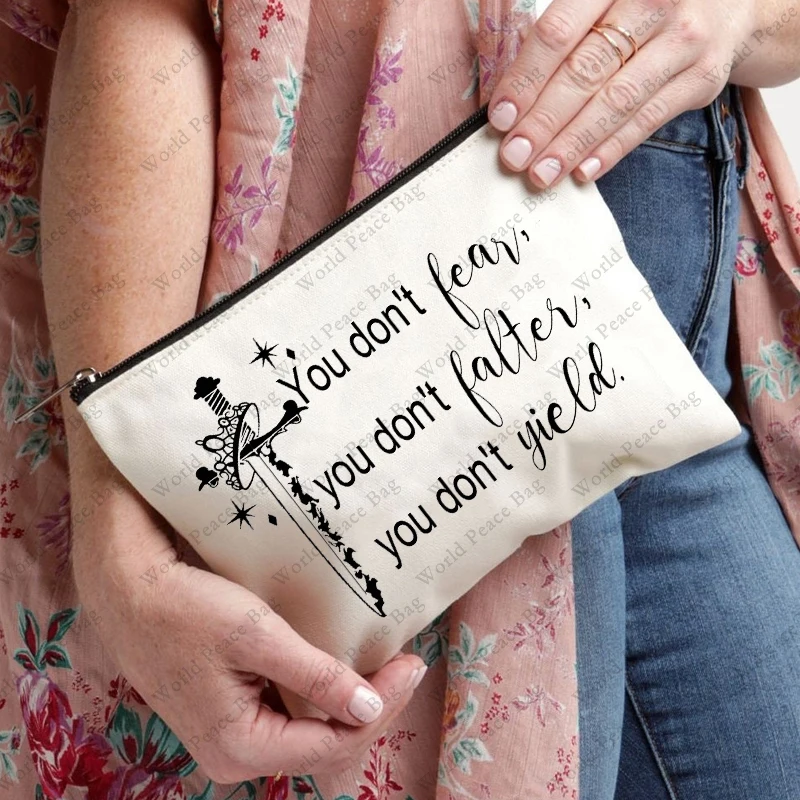 You don't fear,
you don't falter,
you don't yield.
World Peace Bag